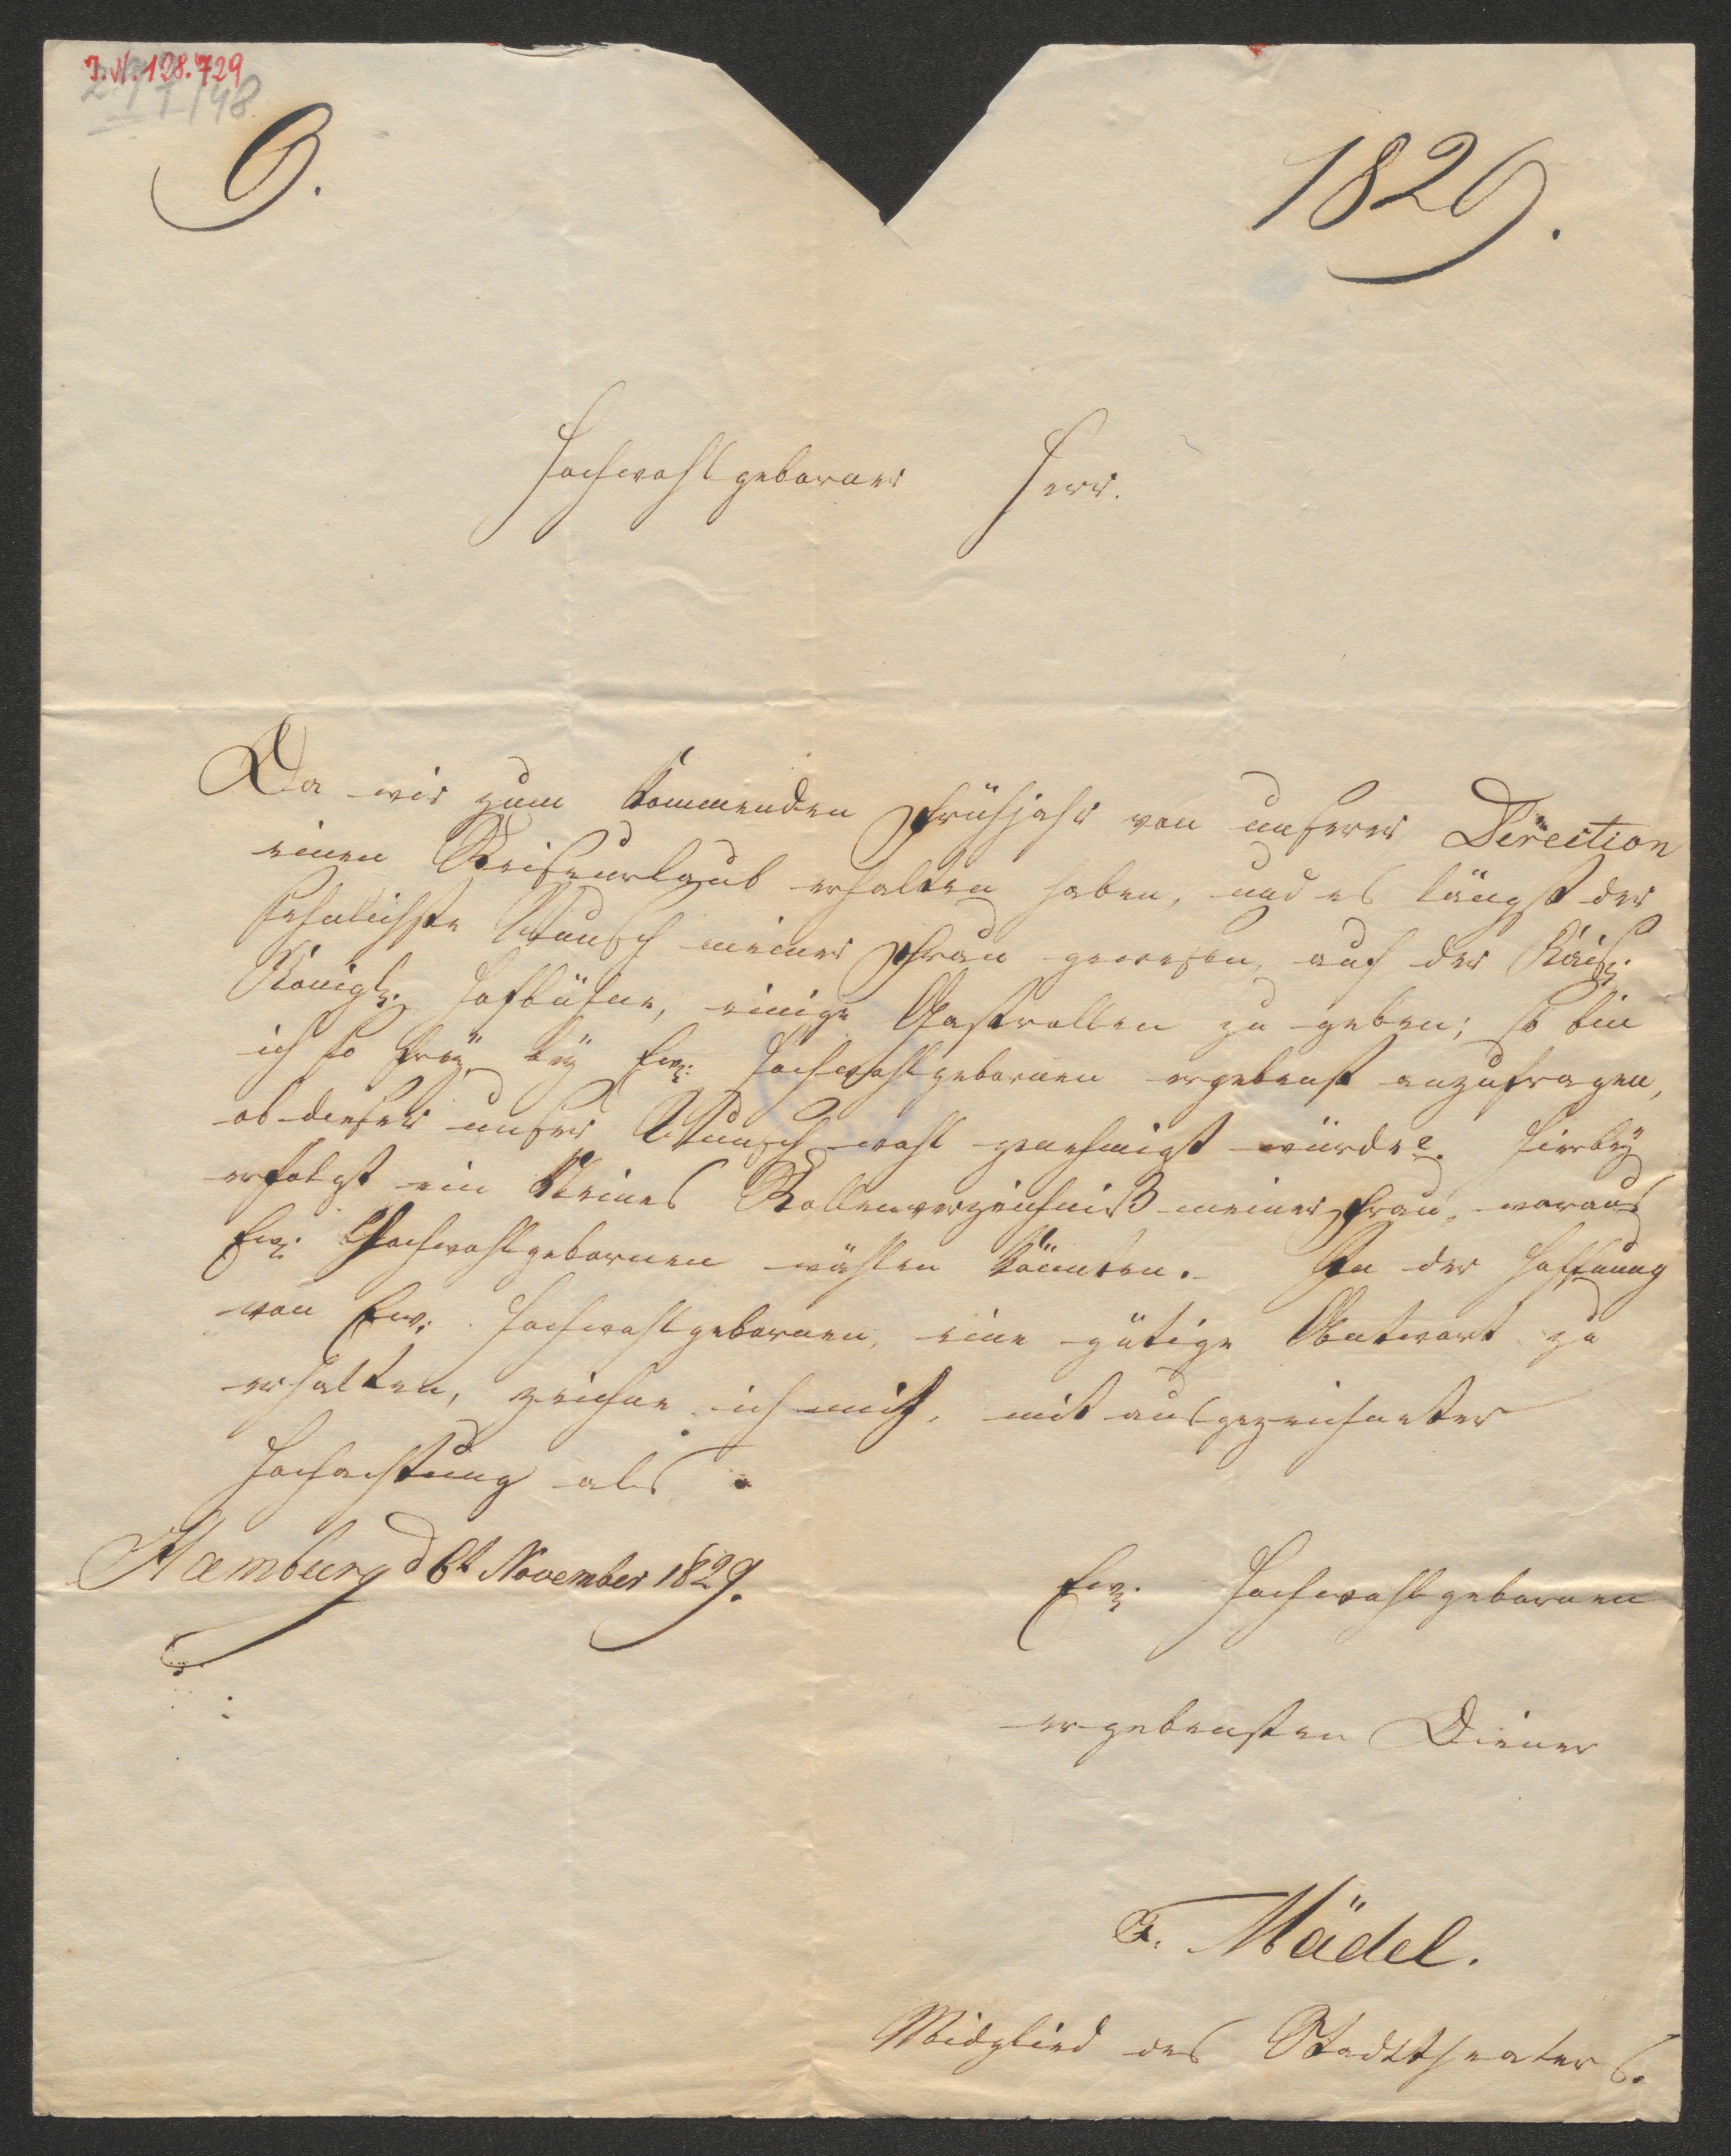 I.N. 128.729
O.
1829.
Hochwohlgeborner Herr.
Da wir zum kommenden Frühjahr von unserer Direction
einen Reiseurlaub erhalten haben, und es längst der
sehnlichste Wunsch meiner Frau gewesen, auf der Kais.
Königl. Hofbühne, einige Gastrollen zu geben; so bin
ich so frey, bey Ew: Hochwohlgebornen ergebenst anzufragen,
ob dieser unser Wunsch wohl genehmigt würde. Hierbey
erfolgt ein kleines Rollenverzeichniß meiner Frau, woraus
Ew: Hochwohlgebornen wählen könnten. In der Hoffnung
von Ew: Hochwohlgebornen, eine gütige Antwort zu
erhalten, zeichne ich mich, mit ausgezeichneter
Hochachtung als
Hamburg d 6t November 1829.
Ew: Hochwohlgebornen
ergebensten Diener
Mädel.
Midglied des Stadttheaters.